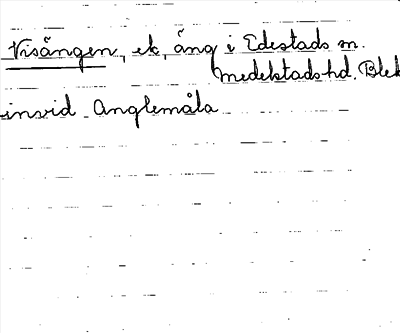 Visängen, ek, äng i Edestads sn.
Medelstads hd. Blek
invid Anglemåla